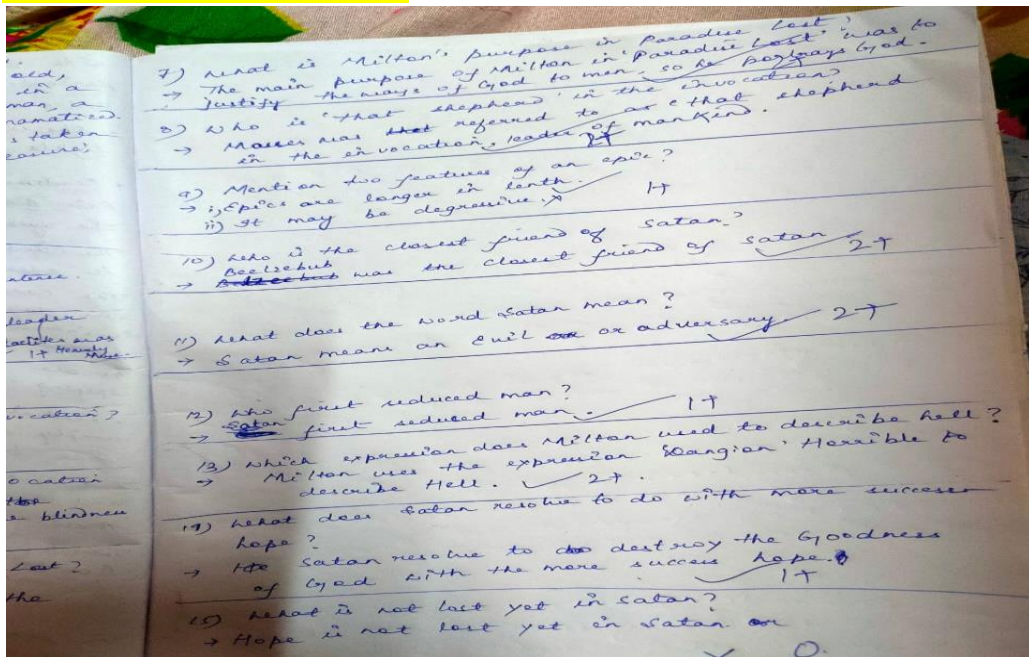 old,
in a
man, a
s taken
7) What is Milton's purpose in Paradise Lost?
→ The main purpose of Milton in 'Paradise Lost' was to
justify the ways of God to men, so he portrays God.
8) Who is 'that shepherd' in the invocation?
→ Moses was referred to as 'that shepherd
in the envocation, leader of mankind.
2+
9) Mention two features of an epic?
→ i) Epics are longer in lenth.
ii) It may be degressive. x 1+
10) Who is the closest friend of Satan?
Beelzebub
→ was the closest friend of Satan 2+
11) What does the word Satan mean?
→ Satan means an evil or or adversary. 2+
12) Who first seduced man?
→ Satan first seduced man. 1+
13) Which expression does Milton used to describe hell?
→ Milton uses the expression Horrible to
describe Hell. 2+.
14) What does Satan resolve to do with more success
hope?
→ Satan resolve to do destroy the Goodness
of God with the more success hope.
1+
15) What is not lost yet in Satan?
→ Hope is not lost yet in Satan or
x 0.
leader
1+
vocation?
ocation
e blindness
Lost?
the